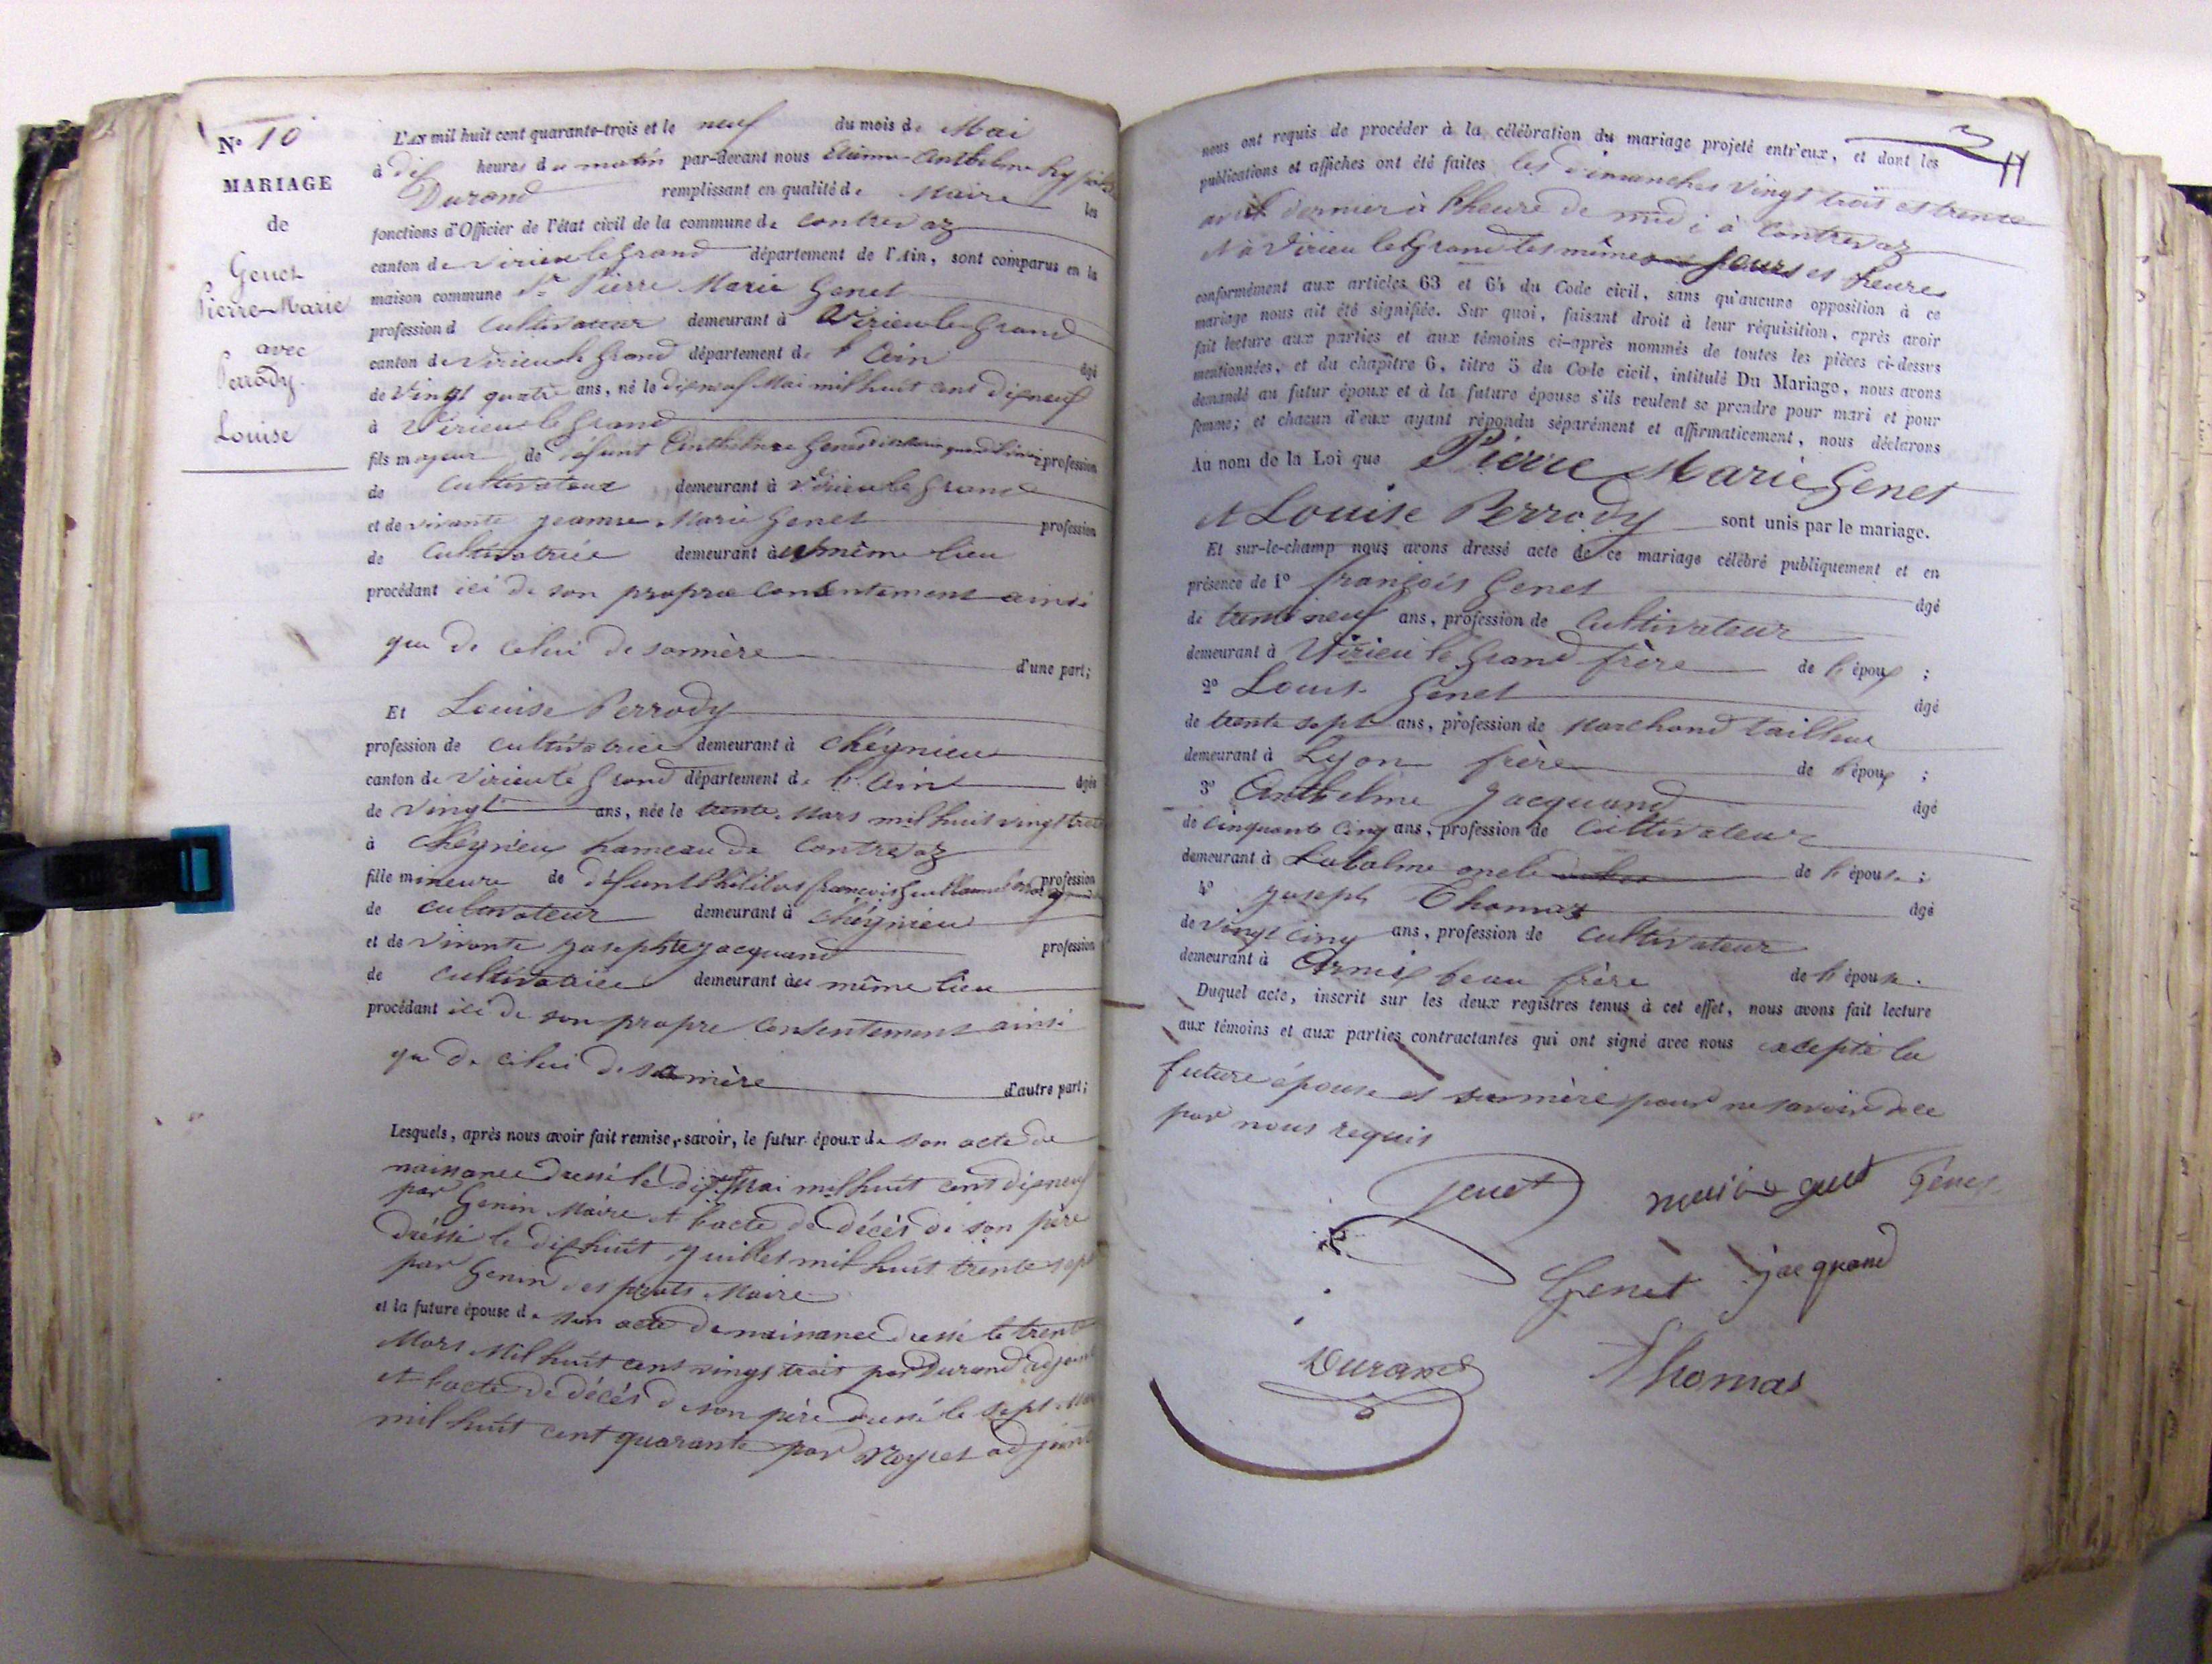 N° 10
MARIAGE
de
Genet
Pierre-Marie
avec
Perrody
Louise
L'AN mil huit cent quarante-trois et le neuf du mois de Mai
à dix heures du matin par-devant nous Etienne Anthelme
Durand remplissant en qualité de Maire les
fonctions d'Officier de l'état civil de la commune de Contrevoz
canton de Virieu le Grand département de l'Ain, sont comparus en la
maison commune Sr Pierre Marie Genet
profession d Cultivateur demeurant à Virieu le Grand
canton de Virieu le Grand département de l'Ain âgé
de Vingt quatre ans, né le dix neuf Mai mil huit cent dix neuf
à Virieu le Grand
fils majeur de défunt Anthelme Genet profession
de Cultivateur demeurant à Virieu le Grand
et de vivante Jeanne Marie Genet profession
de Cultivatrice demeurant au même lieu
procédant ici de son propre consentement ainsi
que de celui de sa mère d'une part;
Et Louise Perrody
profession de cultivatrice demeurant à Chégnieu
canton de Virieu le Grand département de l'Ain âgée
de vingt ans, née le trente Mars mil huit vingt trois
à Chégnieu hameau de Contrevoz
fille mineure de défunt Philibert françois Guillaume profession
de cultivateur demeurant à Chégnieu
et de vivante Josephte Jacquand profession
de cultivatrice demeurant au même lieu
procédant ici de son propre consentement ainsi
que de celui de sa mère d'autre part;
Lesquels, après nous avoir fait remise, savoir, le futur époux de son acte de
naissance dressé le dix neuf Mai mil huit cent dix neuf
par Genin Maire et l'acte de décès de son père
dressé le dix huit Juillet mil huit trente sept
par Genin des prats Maire
et la future épouse de son acte de naissance dressé le trente
Mars Mil huit cent vingt trois par Durand adjoint
et l'acte de décès de son père dressé le sept Mai
mil huit cent quarante par Royet adjoint
11
nous ont requis de procéder à la célébration du mariage projeté entr'eux, et dont les
publications et affiches ont été faites les dimanches vingt trois et trente
avril dernier à l'heure de midi à Contrevoz
et à Virieu le Grand les mêmes jours et heures
conformément aux articles 63 et 64 du Code civil, sans qu'aucune opposition à ce
mariage nous ait été signifiée. Sur quoi, faisant droit à leur réquisition, après avoir
fait lecture aux parties et aux témoins ci-après nommés de toutes les pièces ci-dessus
mentionnées, et du chapitre 6, titre 5 du Code civil, intitulé Du Mariage, nous avons
demandé au futur époux et à la future épouse s'ils veulent se prendre pour mari et pour
femme; et chacun d'eux ayant répondu séparément et affirmativement, nous déclarons
Au nom de la Loi que Pierre Marie Genet
et Louise Perrody sont unis par le mariage.
Et sur-le-champ nous avons dressé acte de ce mariage célébré publiquement et en
présence de 1° françois Genet âgé
de trente neuf ans, profession de Cultivateur
demeurant à Virieu le Grand frère de l'époux ;
2° Louis Genet âgé
de trente sept ans, profession de Marchand tailleur
demeurant à Lyon frère de l'époux ;
3° Anthelme Jacquand âgé
de cinquante cinq ans, profession de Cultivateur
demeurant à Labalme oncle de l'épouse ;
4° Joseph Thomas âgé
de vingt cinq ans, profession de Cultivateur
demeurant à Arnix beau frère de l'épouse.
Duquel acte, inscrit sur les deux registres tenus à cet effet, nous avons fait lecture
aux témoins et aux parties contractantes qui ont signé avec nous excepté la
future épouse et sa mère pour ne savoir de ce
par nous requis
Genet Genet
Genet jacquand
Durand Thomas